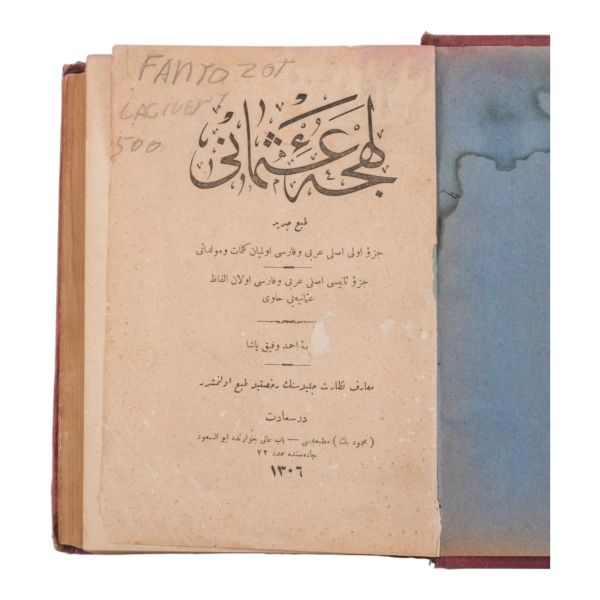 FANTO ZOT
LACIVERT
500
لهجهٔ عثمانی
طبع جدید
جزؤ اولی اصلی عربی و فارسی اولمیان كلمات و مولداتی
جزؤ ثانیسی اصلی عربی و فارسی اولان الفاظ
عثمانیه‌یی حاوی
احمد وفیق پاشا
معارف نظارت جلیله‌سنك رخصتیله طبع اولنمشدر
در سعادت
( محمود بك ) مطبعه‌سی — باب عالی جوارنده ابو السعود
جاده‌سنده عدد ۷۲
۱۳۰٦